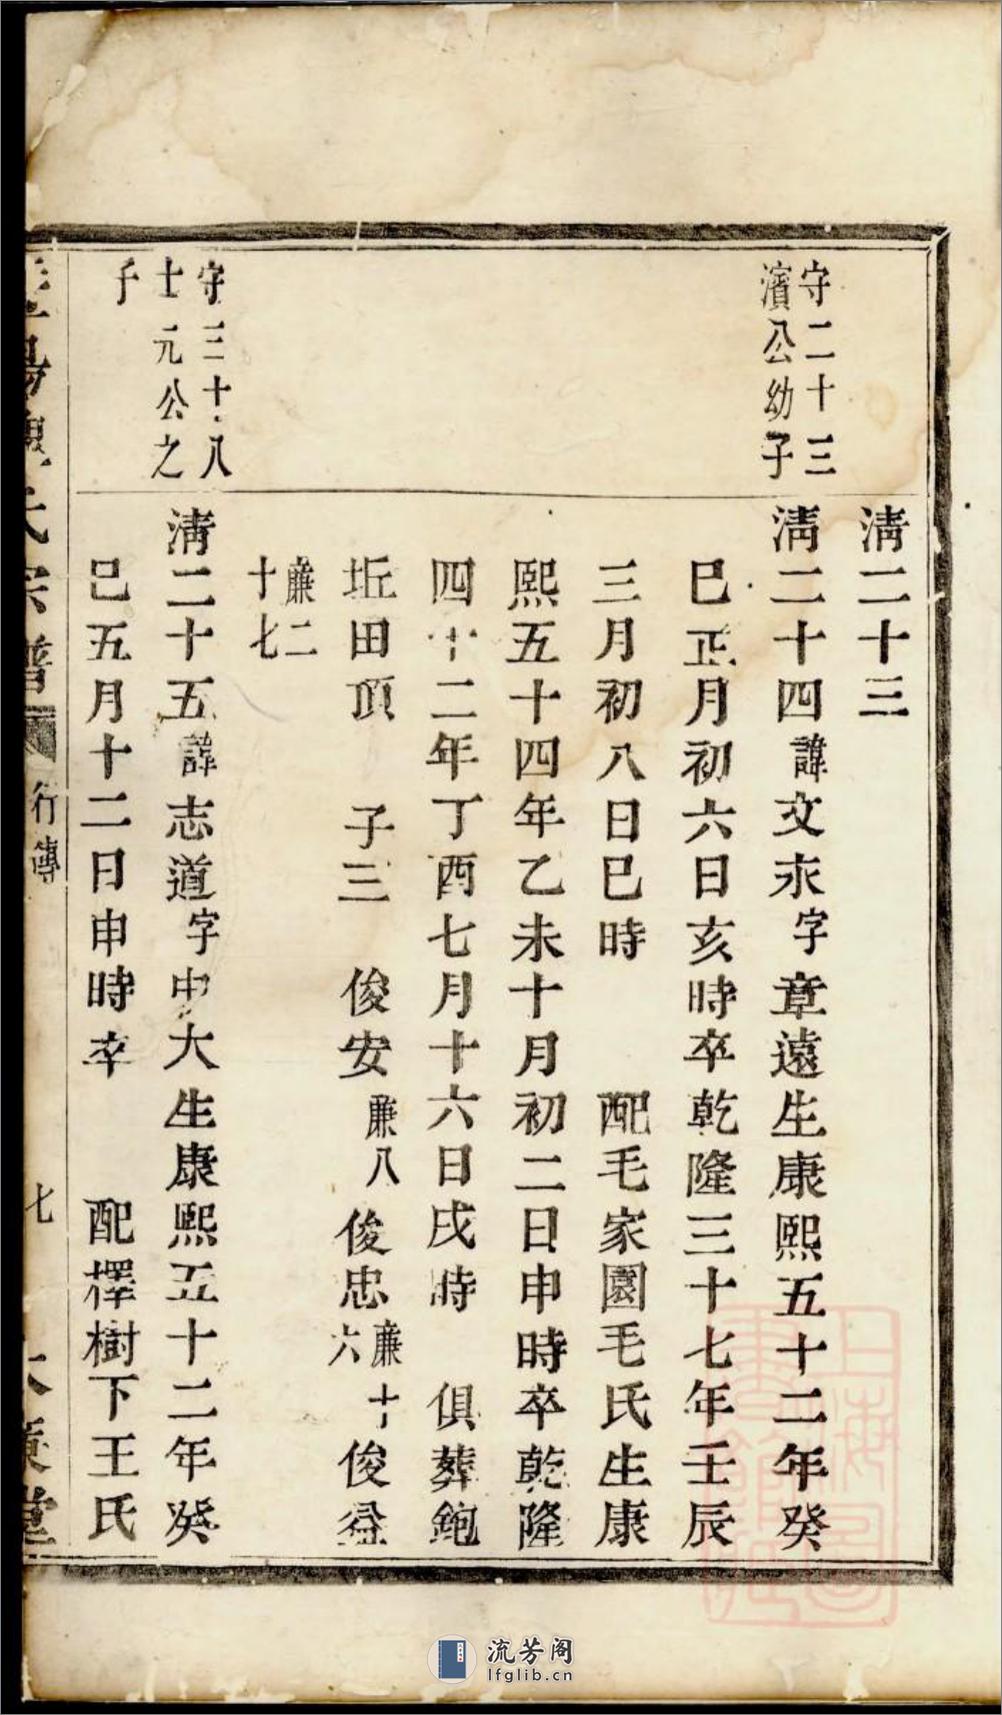 清二十三
守二十三
濱公幼子
清二十四諱文永字章遠生康熙五十二年癸
巳正月初六日亥時卒乾隆三十七年壬辰
三月初八日巳時 配毛家園毛氏生康
熙五十四年乙未十月初二日申時卒乾隆
四十二年丁酉七月十六日戌時 俱葬鉋
坵田頂 子三 俊安廉八 俊忠廉十六 俊益
廉二十七
守三十八
士元公之
子
清二十五諱志道字中大生康熙五十二年癸
巳五月十二日申時卒 配檡樹下王氏
氏宗譜
行傳
七
堂
流芳阁
lfglib.cn